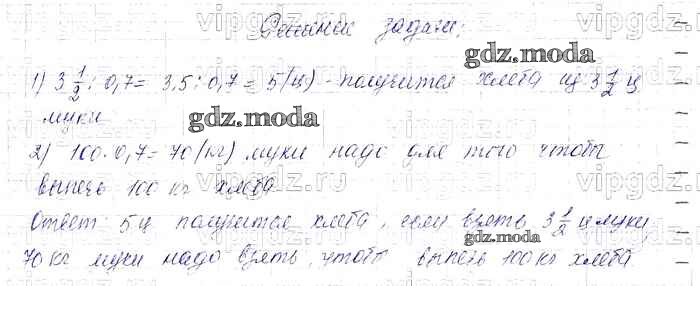 Решение задачи:
1) 3 1/2 : 0,7 = 3,5 : 0,7 = 5 (ц) - получится хлеба из 3 1/2 ц
муки
2) 100 · 0,7 = 70 (кг) муки надо для того чтобы
выпечь 100 кг хлеба
Ответ: 5 ц получится хлеба, если взять 3 1/2 ц муки
70 кг муки надо взять, чтобы выпечь 100 кг хлеба
gdz.moda
gdz.moda
gdz.moda
vipgdz.ru
vipgdz.ru
vipgdz.ru
vipgdz.ru